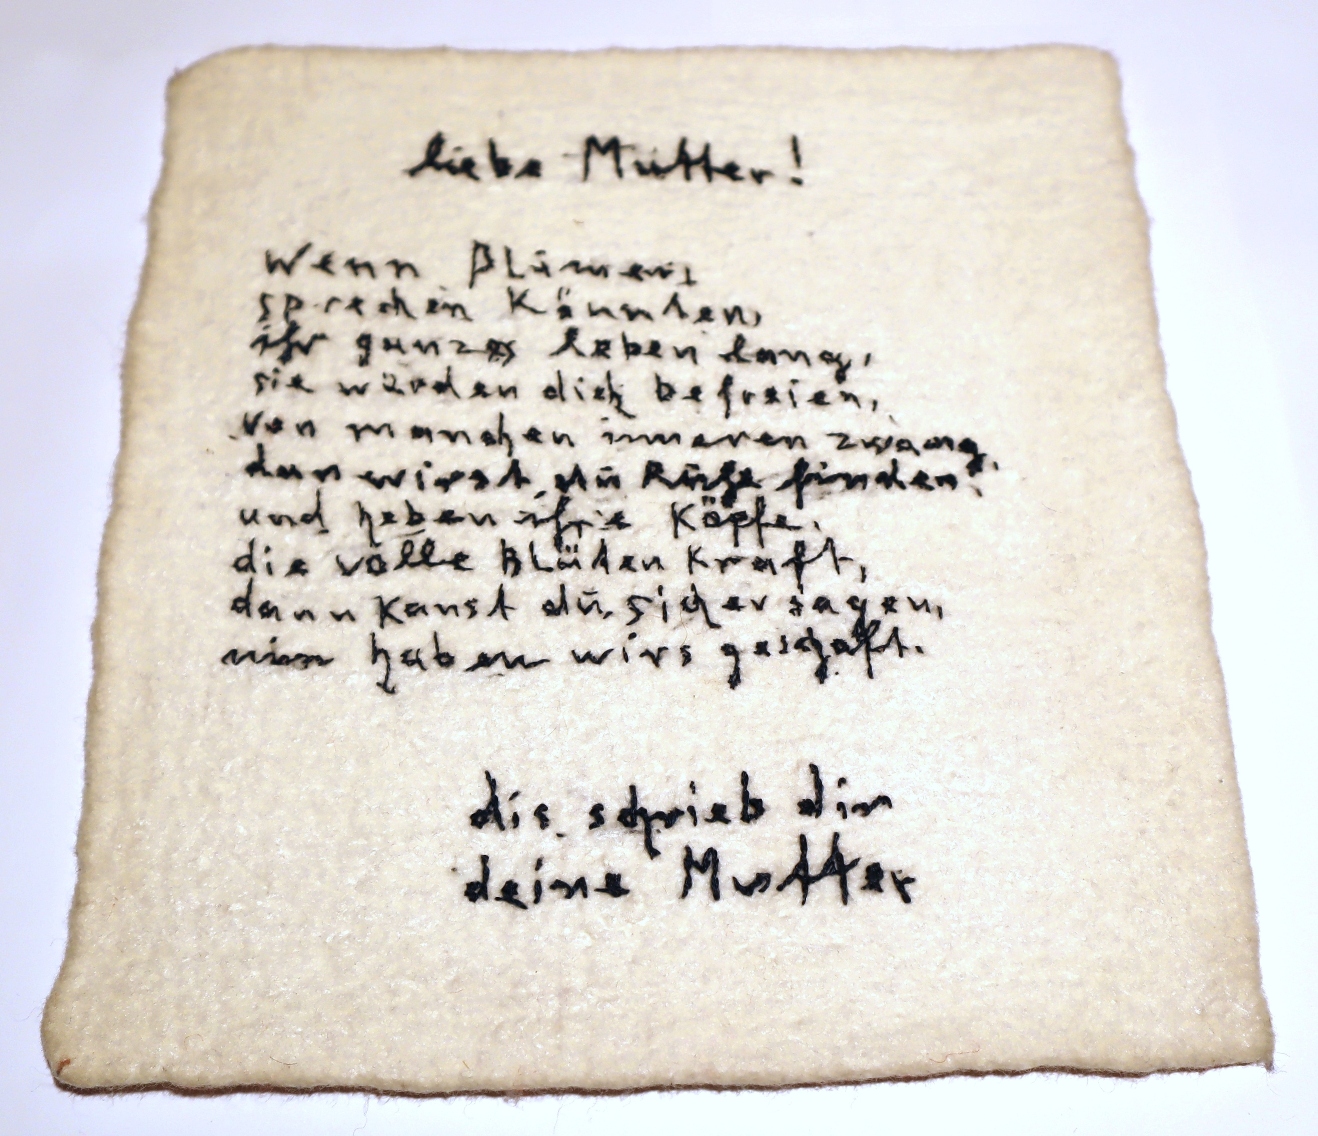 liebe Mutter!
Wenn Blumen,
sprechen Könnten,
ihr ganzes leben lang,
sie würden dich befreien,
von manchen inneren zwang,
dan wirst du Ruhe finden!
und heben ihre Köpfe.
die volle Blüten Kraft,
dann Kanst du, sicher sagen,
nun haben wirs geschaft.
dis schrieb dir
deine Mutter